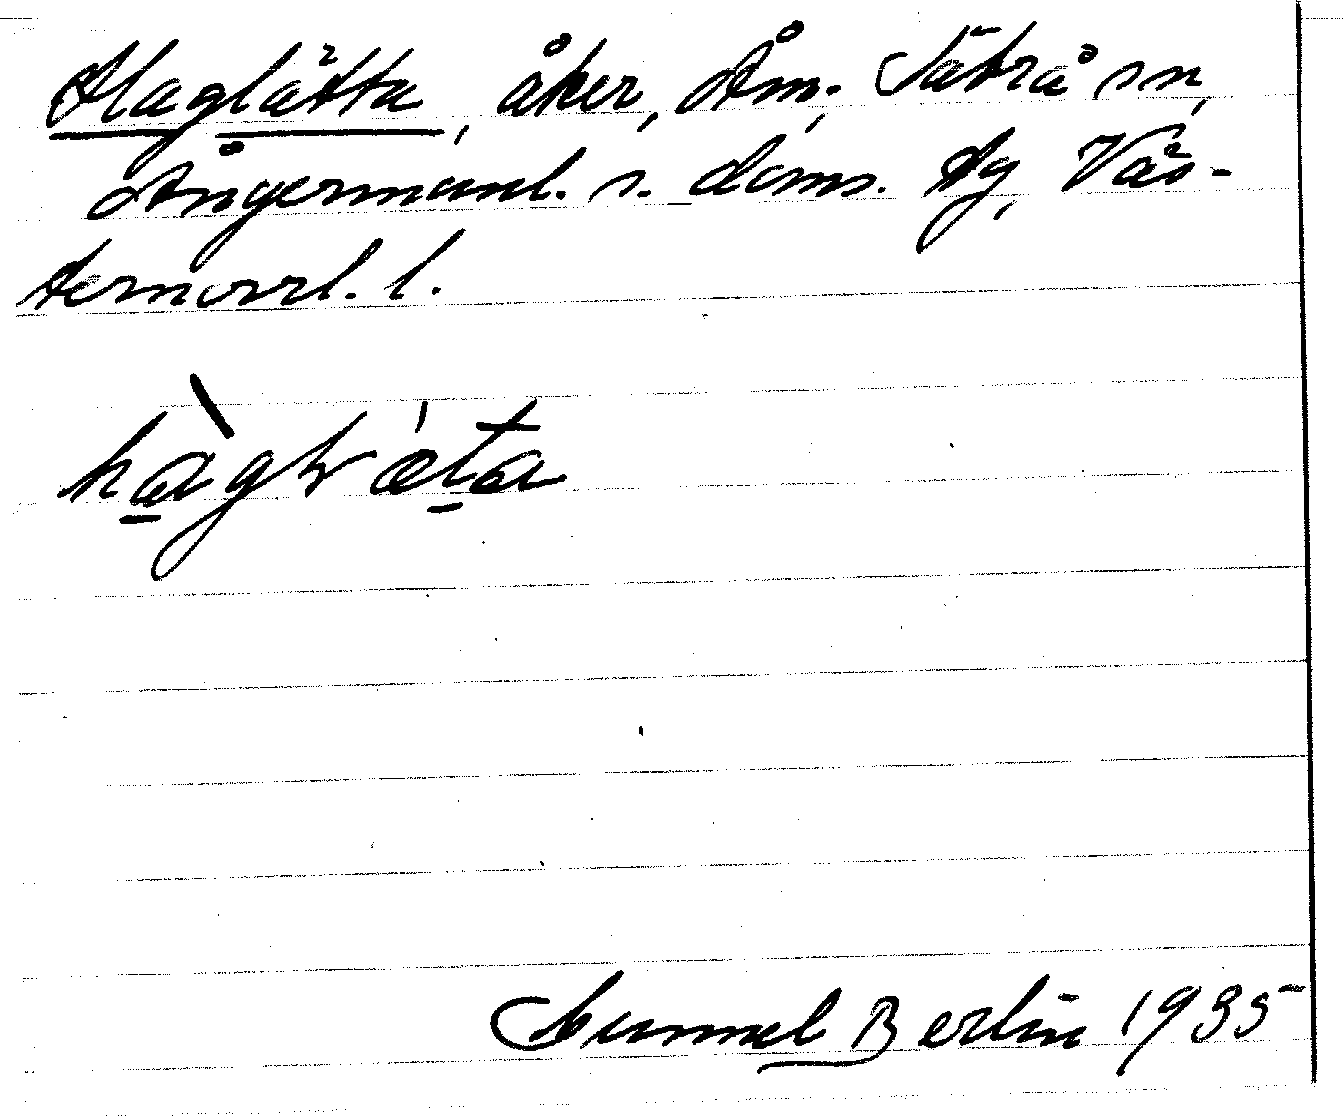 Haglätta, åker, Åm, Sätrå sn,
Ångermanl. s. doms. tg, Väs-
ternorrl. l.
hàgḷæ̀ta
Gunnel Berlin 1935